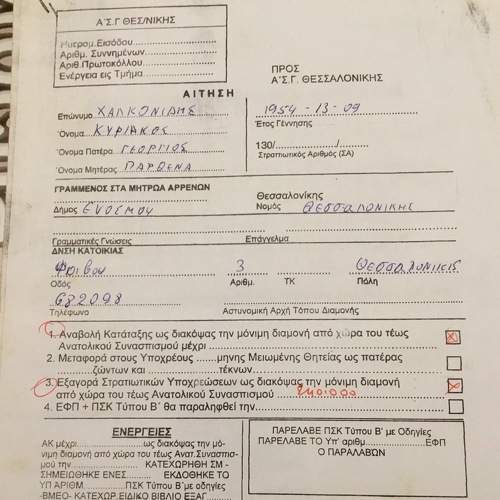 Α΄Σ.Γ ΘΕΣ/ΝΙΚΗΣ
Ημερομ.Εισόδου
Αριθμ. Συννημένων
Αριθ.Πρωτοκόλλου
Ενέργεια εις Τμήμα
ΠΡΟΣ
Α΄Σ.Γ. ΘΕΣΣΑΛΟΝΙΚΗΣ
ΑΙΤΗΣΗ
Επώνυμο ΧΑΛΚΟΝΙΔΗΣ
1954-13-09
Όνομα ΚΥΡΙΑΚΟΣ
Έτος Γέννησης
Όνομα Πατέρα ΓΕΟΡΓΙΟΣ
130/............/............
Στρατιωτικός Αριθμός (ΣΑ)
Όνομα Μητέρας ΠΑΡΘΕΝΑ
ΓΡΑΜΜΕΝΟΣ ΣΤΑ ΜΗΤΡΩΑ ΑΡΡΕΝΩΝ
Θεσσαλονίκης
Δήμος ΕΥΟΣΜΟΥ
Νομός ΘΕΣΣΑΛΟΝΙΚΗΣ
Γραμματικές Γνώσεις
Επάγγελμα
ΔΝΣΗ ΚΑΤΟΙΚΙΑΣ
3
Οδός
Αριθμ.
ΤΚ
Πόλη
682098
Τηλέφωνο
Αστυνομική Αρχή Τόπου Διαμονής
1. Αναβολή Κατάταξης ως διακόψας την μόνιμη διαμονή από χώρα του τέως
Ανατολικού Συνασπισμού μέχρι
2. Μεταφορά στους Υποχρέους ......μηνης Μειωμένης Θητείας ως πατέρας
ζώντων και ..............τέκνων
3. Εξαγορά Στρατιωτικών Υποχρεώσεων ως διακόψας την μόνιμη διαμονή
από χώρα του τέως Ανατολικού Συνασπισμού
4. ΕΦΠ + ΠΣΚ Τύπου Β΄ θα παραληφθεί την
ΕΝΕΡΓΕΙΕΣ
ΑΚ μέχρι..................ως διακόψας την μό-
νιμη διαμονή από χώρα του τέως Ανατ.Συνασπισ-
μού την............ ΚΑΤΕΧΩΡΗΘΗ ΣΜ -
ΣΗΜΕΙΩΘΗΚΕ ΕΝΕΣ ......... ΕΚΔΟΘΗΚΕ ΤΟ
ΥΠ ΑΡΙΘΜ............ΠΣΚ Τύπου Β΄ με οδηγίες
-ΒΜΕΟ- ΚΑΤΕΧΩΡ.ΕΙΔΙΚΟ ΒΙΒΛΙΟ ΕΞΑΓ
ΠΑΡΕΛΑΒΕ ΠΣΚ Τύπου Β΄ με Οδηγίες
ΠΑΡΕΛΑΒΕ ΤΟ Υπ΄ αριθμ..................ΕΦΠ
Ο ΠΑΡΑΛΑΒΩΝ